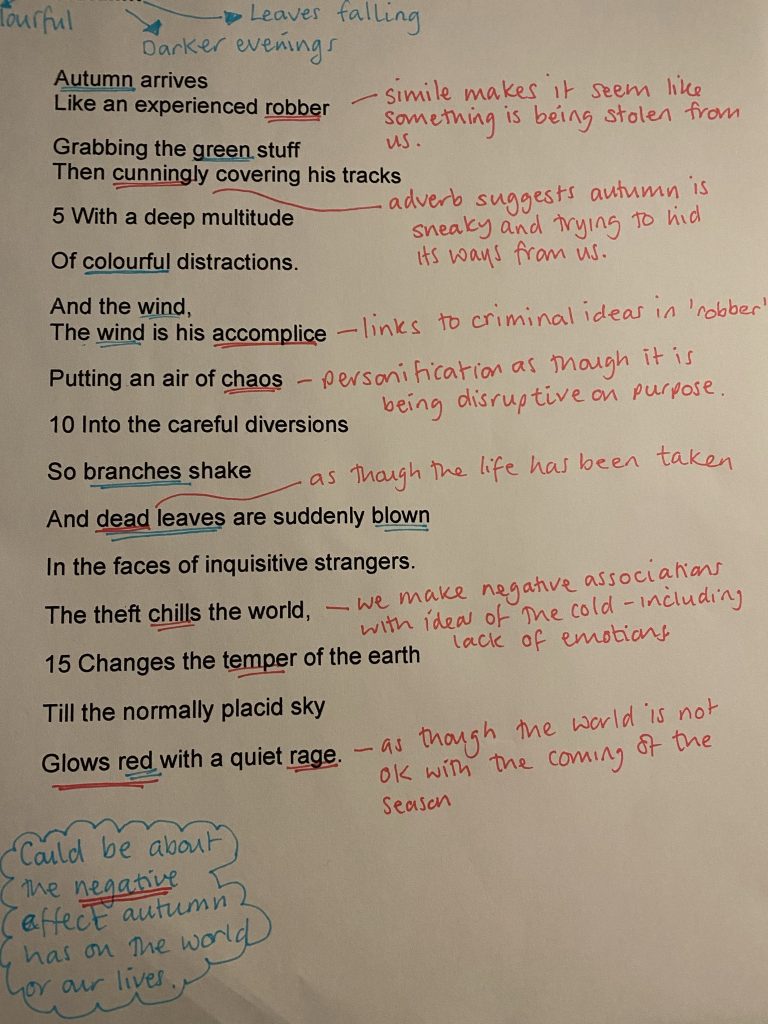 Leaves falling
Darker evenings
Autumn arrives
Like an experienced robber
simile makes it seem like
something is being stolen from
us.
Grabbing the green stuff
Then cunningly covering his tracks
adverb suggests autumn is
sneaky and trying to hid
its ways from us.
5 With a deep multitude
Of colourful distractions.
And the wind,
The wind is his accomplice
links to criminal ideas in 'robber'
Putting an air of chaos
personification as though it is
being disruptive on purpose.
10 Into the careful diversions
So branches shake
as though the life has been taken
And dead leaves are suddenly blown
In the faces of inquisitive strangers.
The theft chills the world,
we make negative associations
with idea of the cold - including
lack of emotions
15 Changes the temper of the earth
Till the normally placid sky
Glows red with a quiet rage.
as though the world is not
ok with the coming of the
season
Could be about
the negative
affect autumn
has on the world
or our lives.